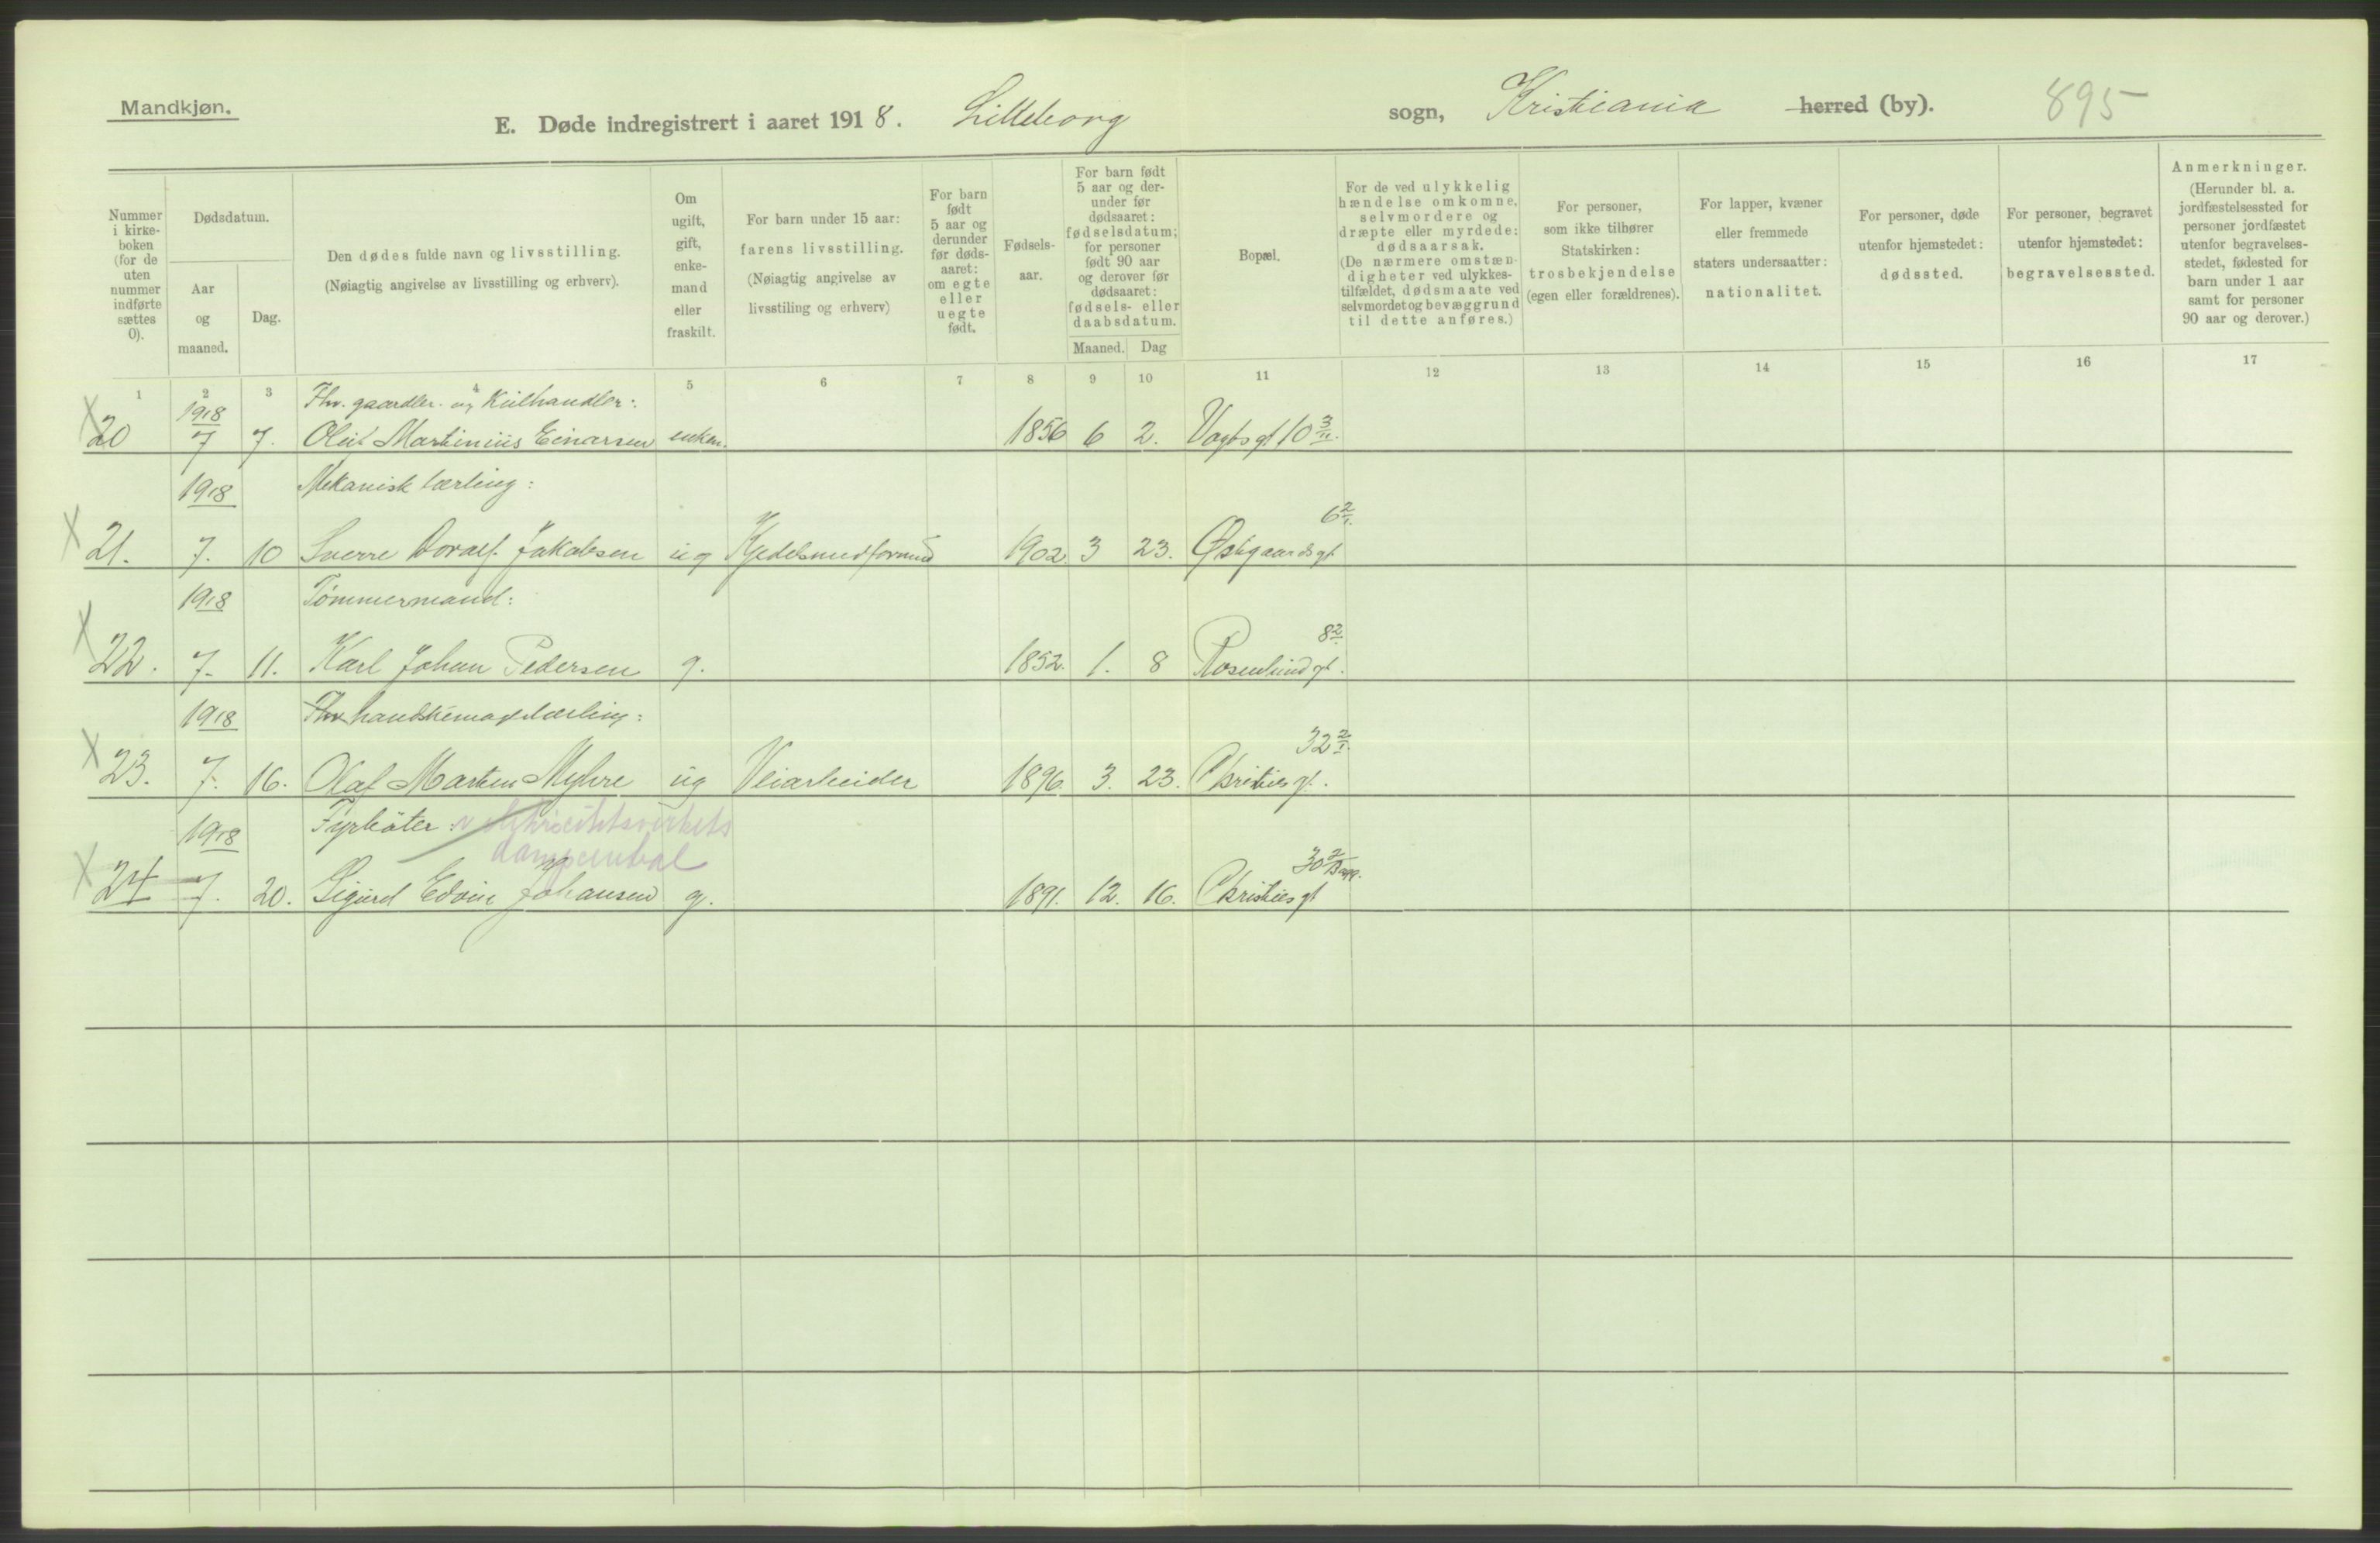 Mandkjøn.
E. Døde indregistrert i aaret 1918. Lilleborg sogn, Kristiania herred (by). 895
Nummer i kirke-boken (for de uten nummer indførte sættes 0).
Dødsdatum.
Aar og maaned.
Dag.
Den dødes fulde navn og livsstilling.
(Nøiagtig angivelse av livsstilling og erhverv).
Om ugift, gift, enke-mand eller fraskilt.
For barn under 15 aar: farens livsstilling.
(Nøiagtig angivelse av livsstiling og erhverv)
For barn født 5 aar og derunder før døds-aaret: om egte eller uegte født.
Fødsels-aar.
For barn født 5 aar og der-under før dødsaaret: fødselsdatum; for personer født 90 aar og derover før dødsaaret: fødsels- eller daabsdatum.
Maaned. Dag
Bopæl.
For de ved ulykkelig hændelse omkomne, selvmordere og dræpte eller myrdede: dødsaarsak.
(De nærmere omstæn-digheter ved ulykkes-tilfældet, dødsmaate ved selvmordet og bevæggrund til dette anføres.)
For personer, som ikke tilhører Statskirken: trosbekjendelse (egen eller forældrenes).
For lapper, kvæner eller fremmede staters undersaatter: nationalitet.
For personer, døde utenfor hjemstedet: dødssted.
For personer, begravet utenfor hjemstedet: begravelsessted.
Anmerkninger.
(Herunder bl. a. jordfæstelsessted for personer jordfæstet utenfor begravelses-stedet, fødested for barn under 1 aar samt for personer 90 aar og derover.)
1 2 3 4 5 6 7 8 9 10 11 12 13 14 15 16 17
1918 Fhv. gaardeier og Kulhandler:
X 20 7 7. Oluf Martinius Einarsen enkem. 1856 6 2. Vogts gt 10 3/11.
1918 Mekanisk lærling: 6 2/1.
X 21. 7. 10 Sverre Toralf Jakobsen ug Kjedelsmedformand 1902 3 23. Østgaards gt
1918 Tømmermand: 8 2/
X 22. 7. 11. Karl Johan Pedersen g. 1852. 1. 8 Rosenlund gt.
1918 Fhv handskemagerlærling: 32 2/1.
X 23. 7. 16. Olaf Marten Myhre ug Veiarbeider 1896. 3. 23. Christies gt.
1918 Fyrbøter v elektricitetsverkets
dampcentral 30 2/
X 24 7. 20. Sigurd Edvin Johansen g. 1891. 12. 16. Christies gt